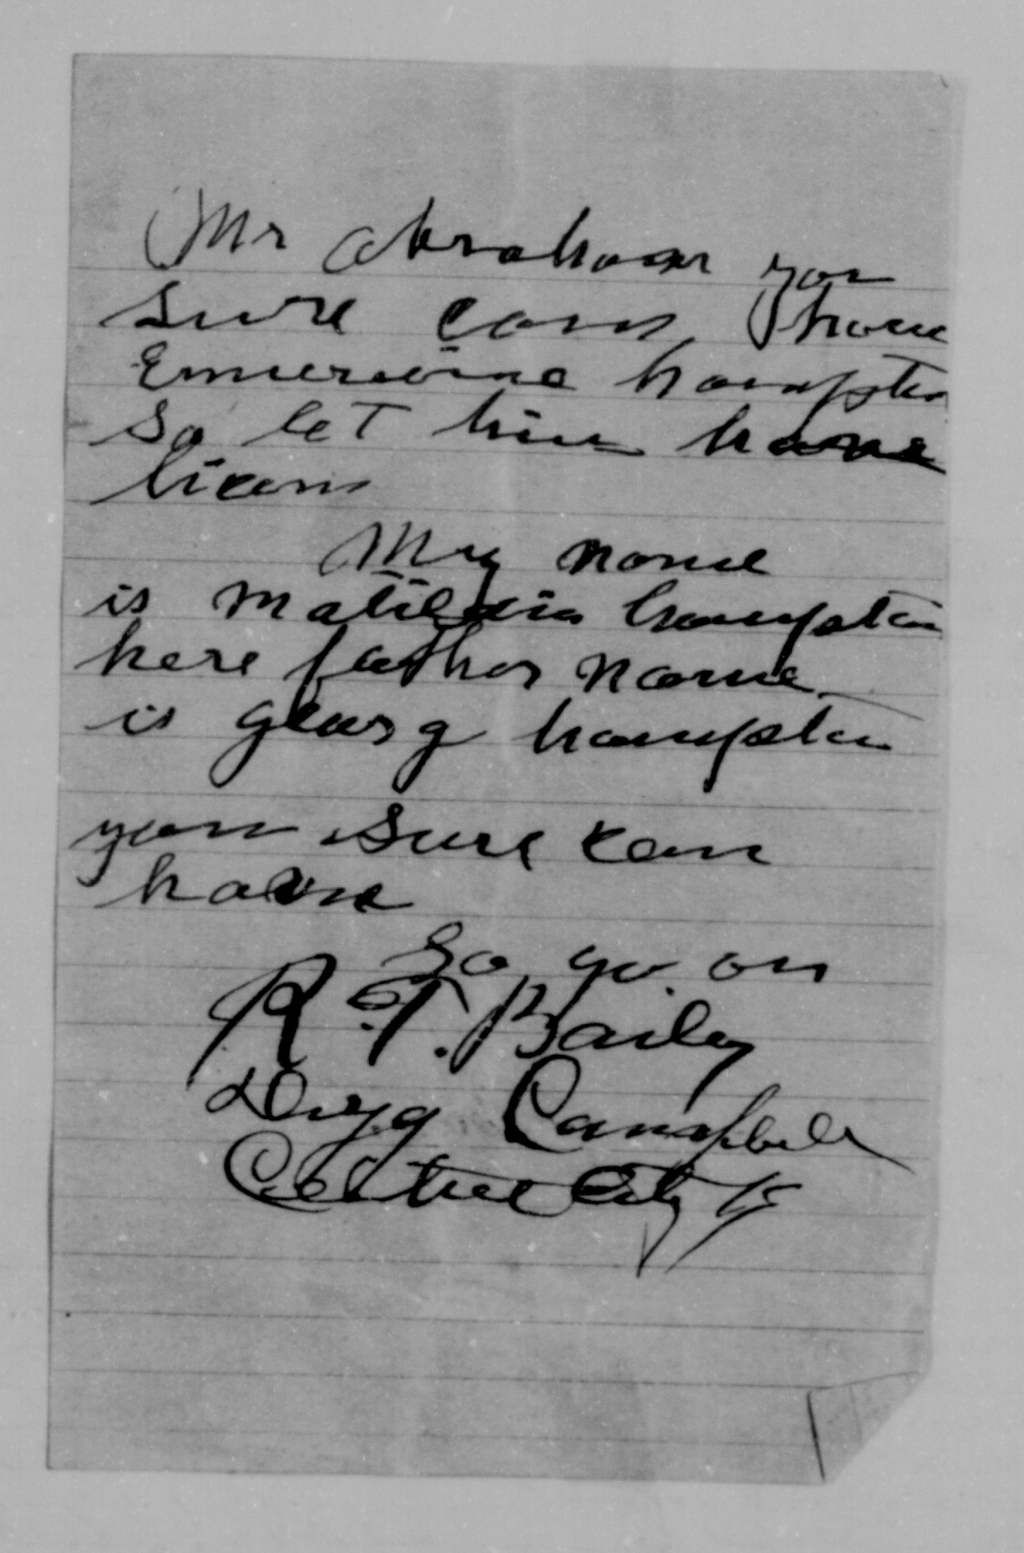 Mr Abraham you
sure can have
Emmerine hampton
So let him have
licans
My name
is Matildia hampton
here father name
is gearg hampton
you sure can
have
So go on
R. T. Bailey
Campbell
Centree City Ky